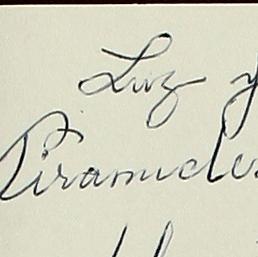 Luz y
Piramides